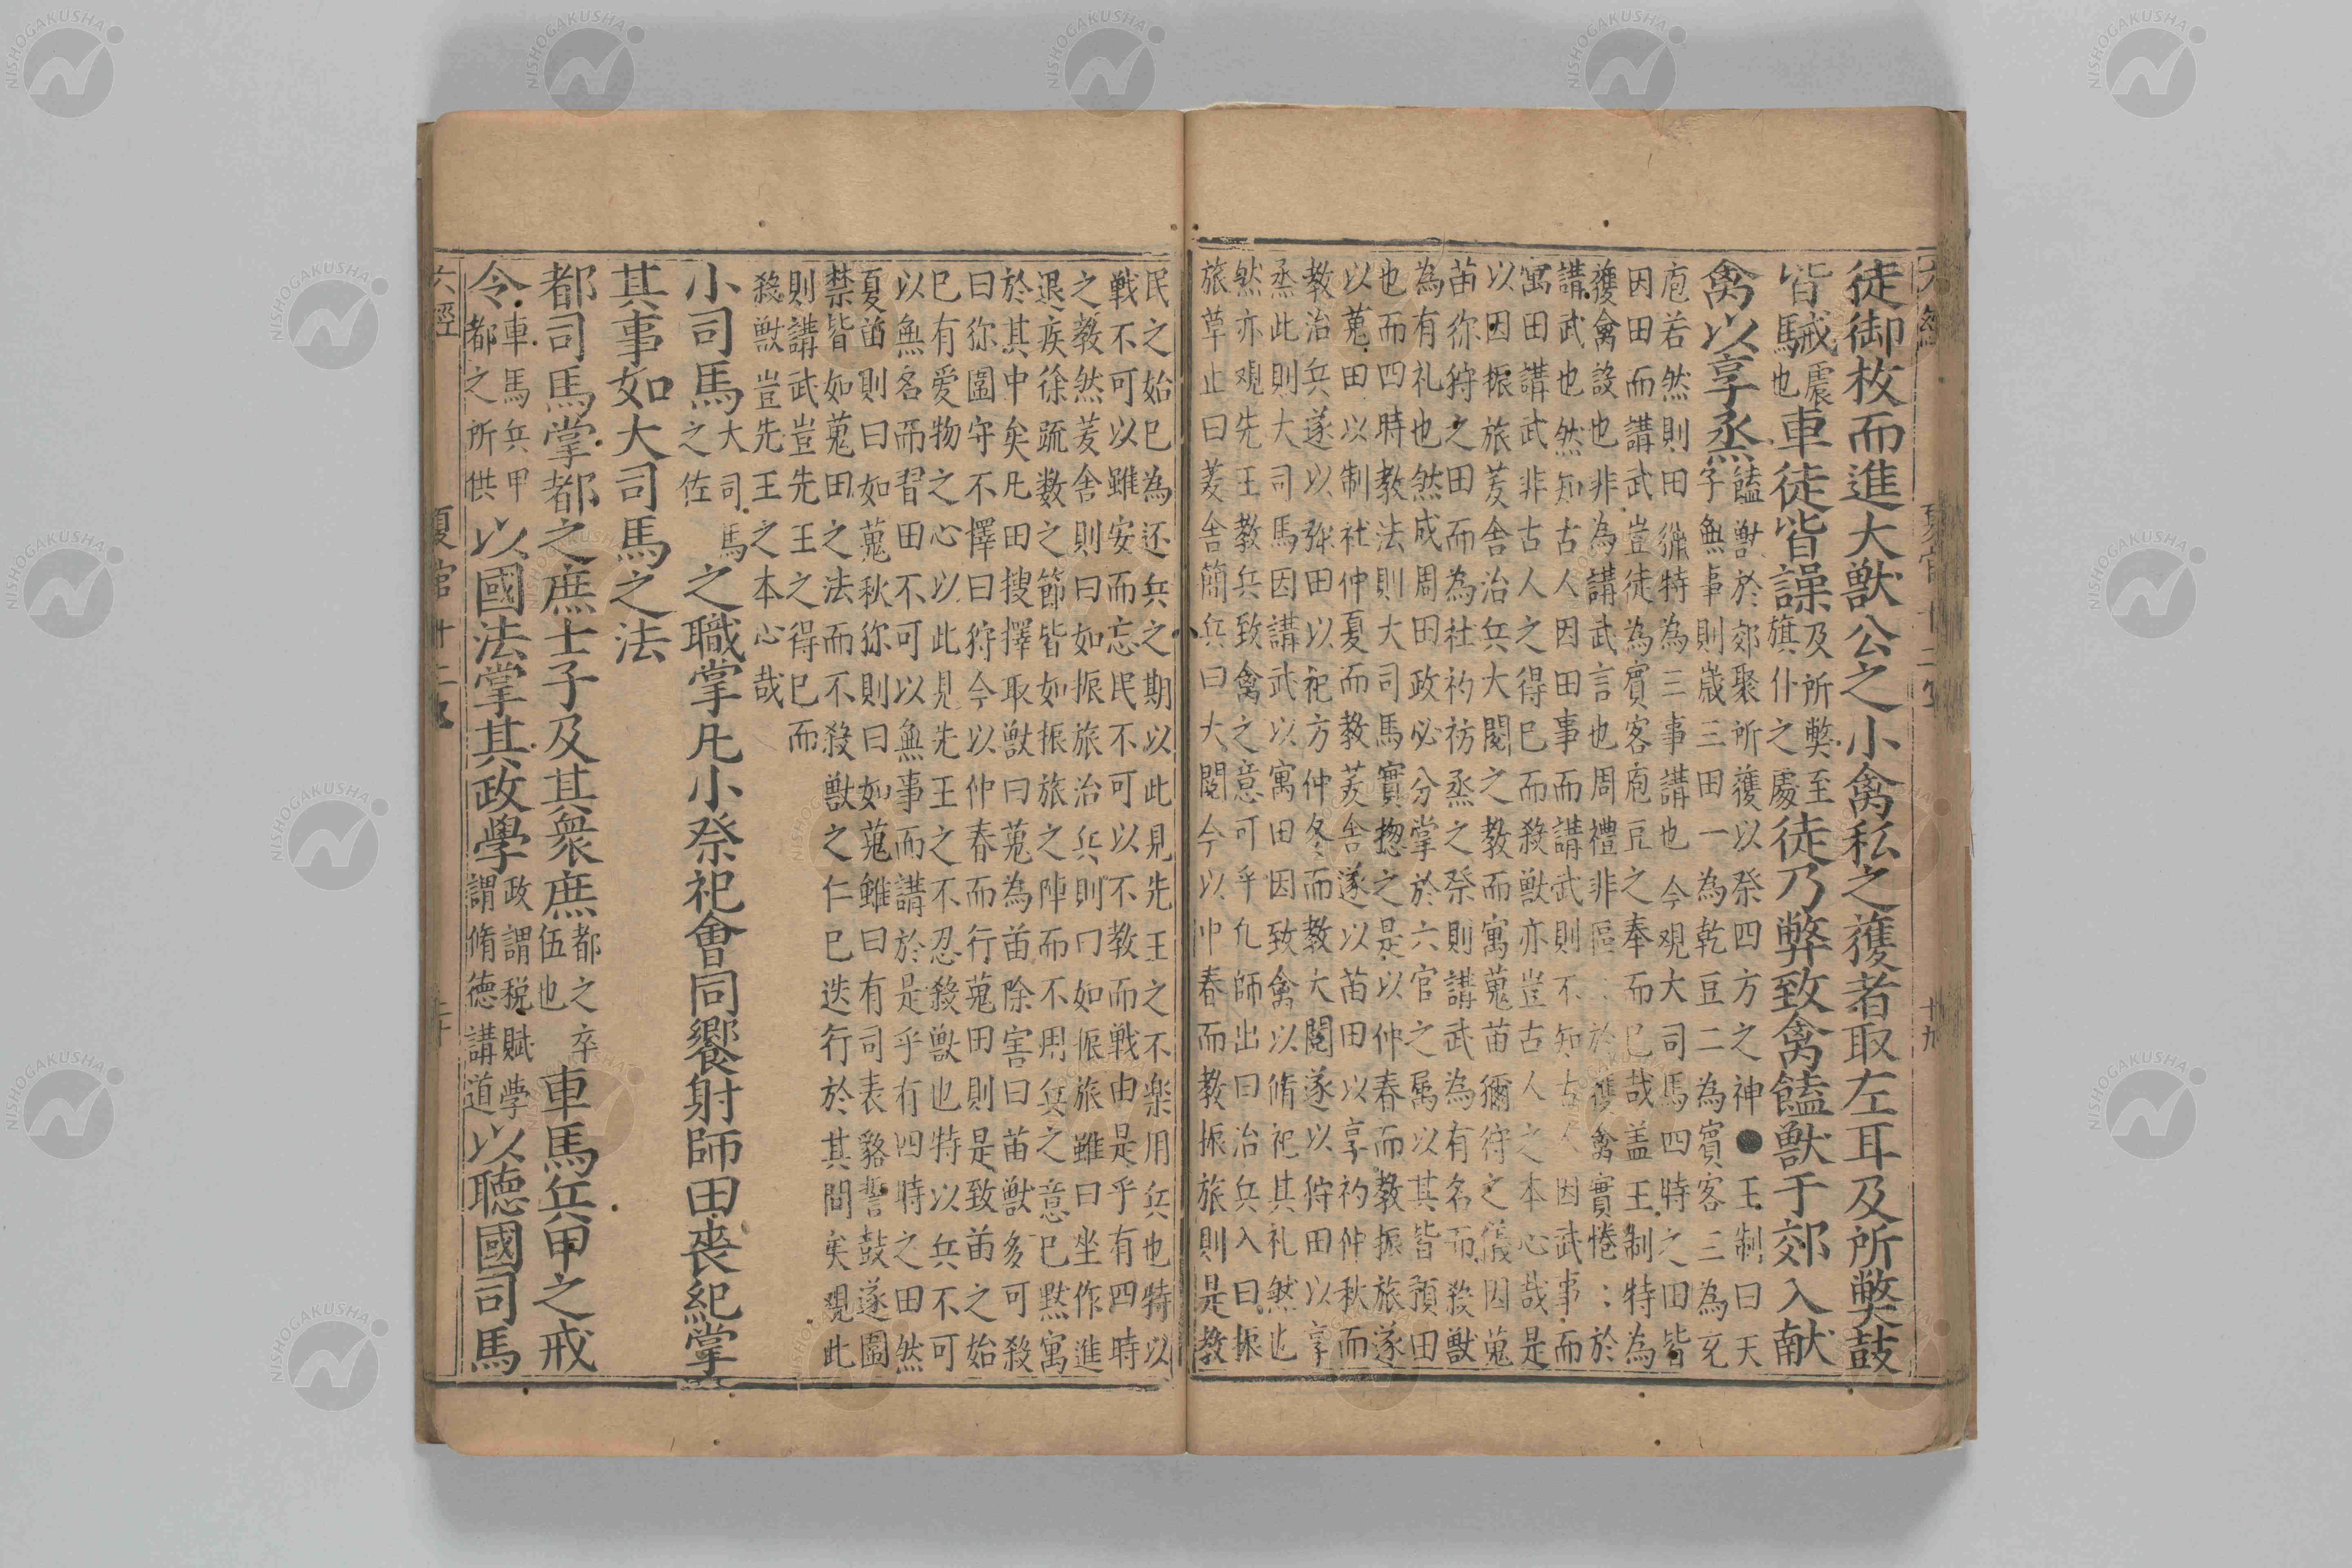 徒御枚而進大獣公之小禽私之獲者取左耳及所獘鼓
皆駴震也車徒皆譟及所獘至旗仆之處徒乃弊致禽饁獣于郊入献
禽以享烝饁獣於郊聚所獲以祭四方之神●王制曰天
子無事則歳三田一為乾豆二為賓客三為充
庖若然則田獵特為三事講也今观大司馬四時之田皆
因田而講武豈徒為賓客庖豆之奉而已哉盖王制特為
獲禽設也非為講武言也周禮非於獲禽實惓:於
講武也然知古人因田事而講武則不知古人因武事而
寓田講武非古人之得已而殺獣亦豈古人之本心哉是
以因振旅茇舎治兵大閱之教而寓蒐苗獮狩之儀因蒐
苗狝狩之田而為社礿祊烝之祭則講武為有名而殺獣
為有礼也然成周田政必分掌於六官之属以其皆預田
也而四時教法則大司馬實揔之是以仲春而教振旅遂
以蒐田以制社仲夏而教茇舎遂以苗田以享礿仲秋而
教治兵遂以狝田以祀方仲冬而教大閱遂以狩田以享
烝此則大司馬因講武以寓田因致禽以脩祀其礼然也
然亦观先王教兵致禽之意可乎凢師出曰治兵入曰振
旅草止曰茇舎簡兵曰大閱今以仲春而教振旅則是教
民之始已為还兵之期以此見先王之不楽用兵也特以
戦不可以雖安而忘民不可以不教而戦由是乎有四時
之教然茇舎則曰如振旅治兵則曰如振旅雖曰坐作進
退疾徐疏数之節皆如振旅之陣而不用兵之意已黙寓
於其中矣凡田搜擇取獣曰蒐為苗除害曰苗獣多可殺
曰狝圍守不擇曰狩今以仲春而行蒐田則是致苗之始
已有愛物之心以此見先王之不忍殺獣也特以兵不可
以無名而習田不可以無事而講於是乎有四時之田然
夏苗則曰如蒐秋狝則曰如蒐雖曰有司表貉誓鼓遂圍
禁皆如蒐田之法而不殺獣之仁已迭行於其間矣观此
則講武豈先王之得已而
殺獣豈先王之本心哉
小司馬大司馬之佐之職掌凡小祭祀會同饗射師田喪紀掌
其事如大司馬之法
都司馬掌都之庶士子及其衆庶都之卒伍也車馬兵甲之戒
令車馬兵甲都之所供以國法掌其政學政謂税賦学謂脩徳講道以聴國司馬
六經
夏官